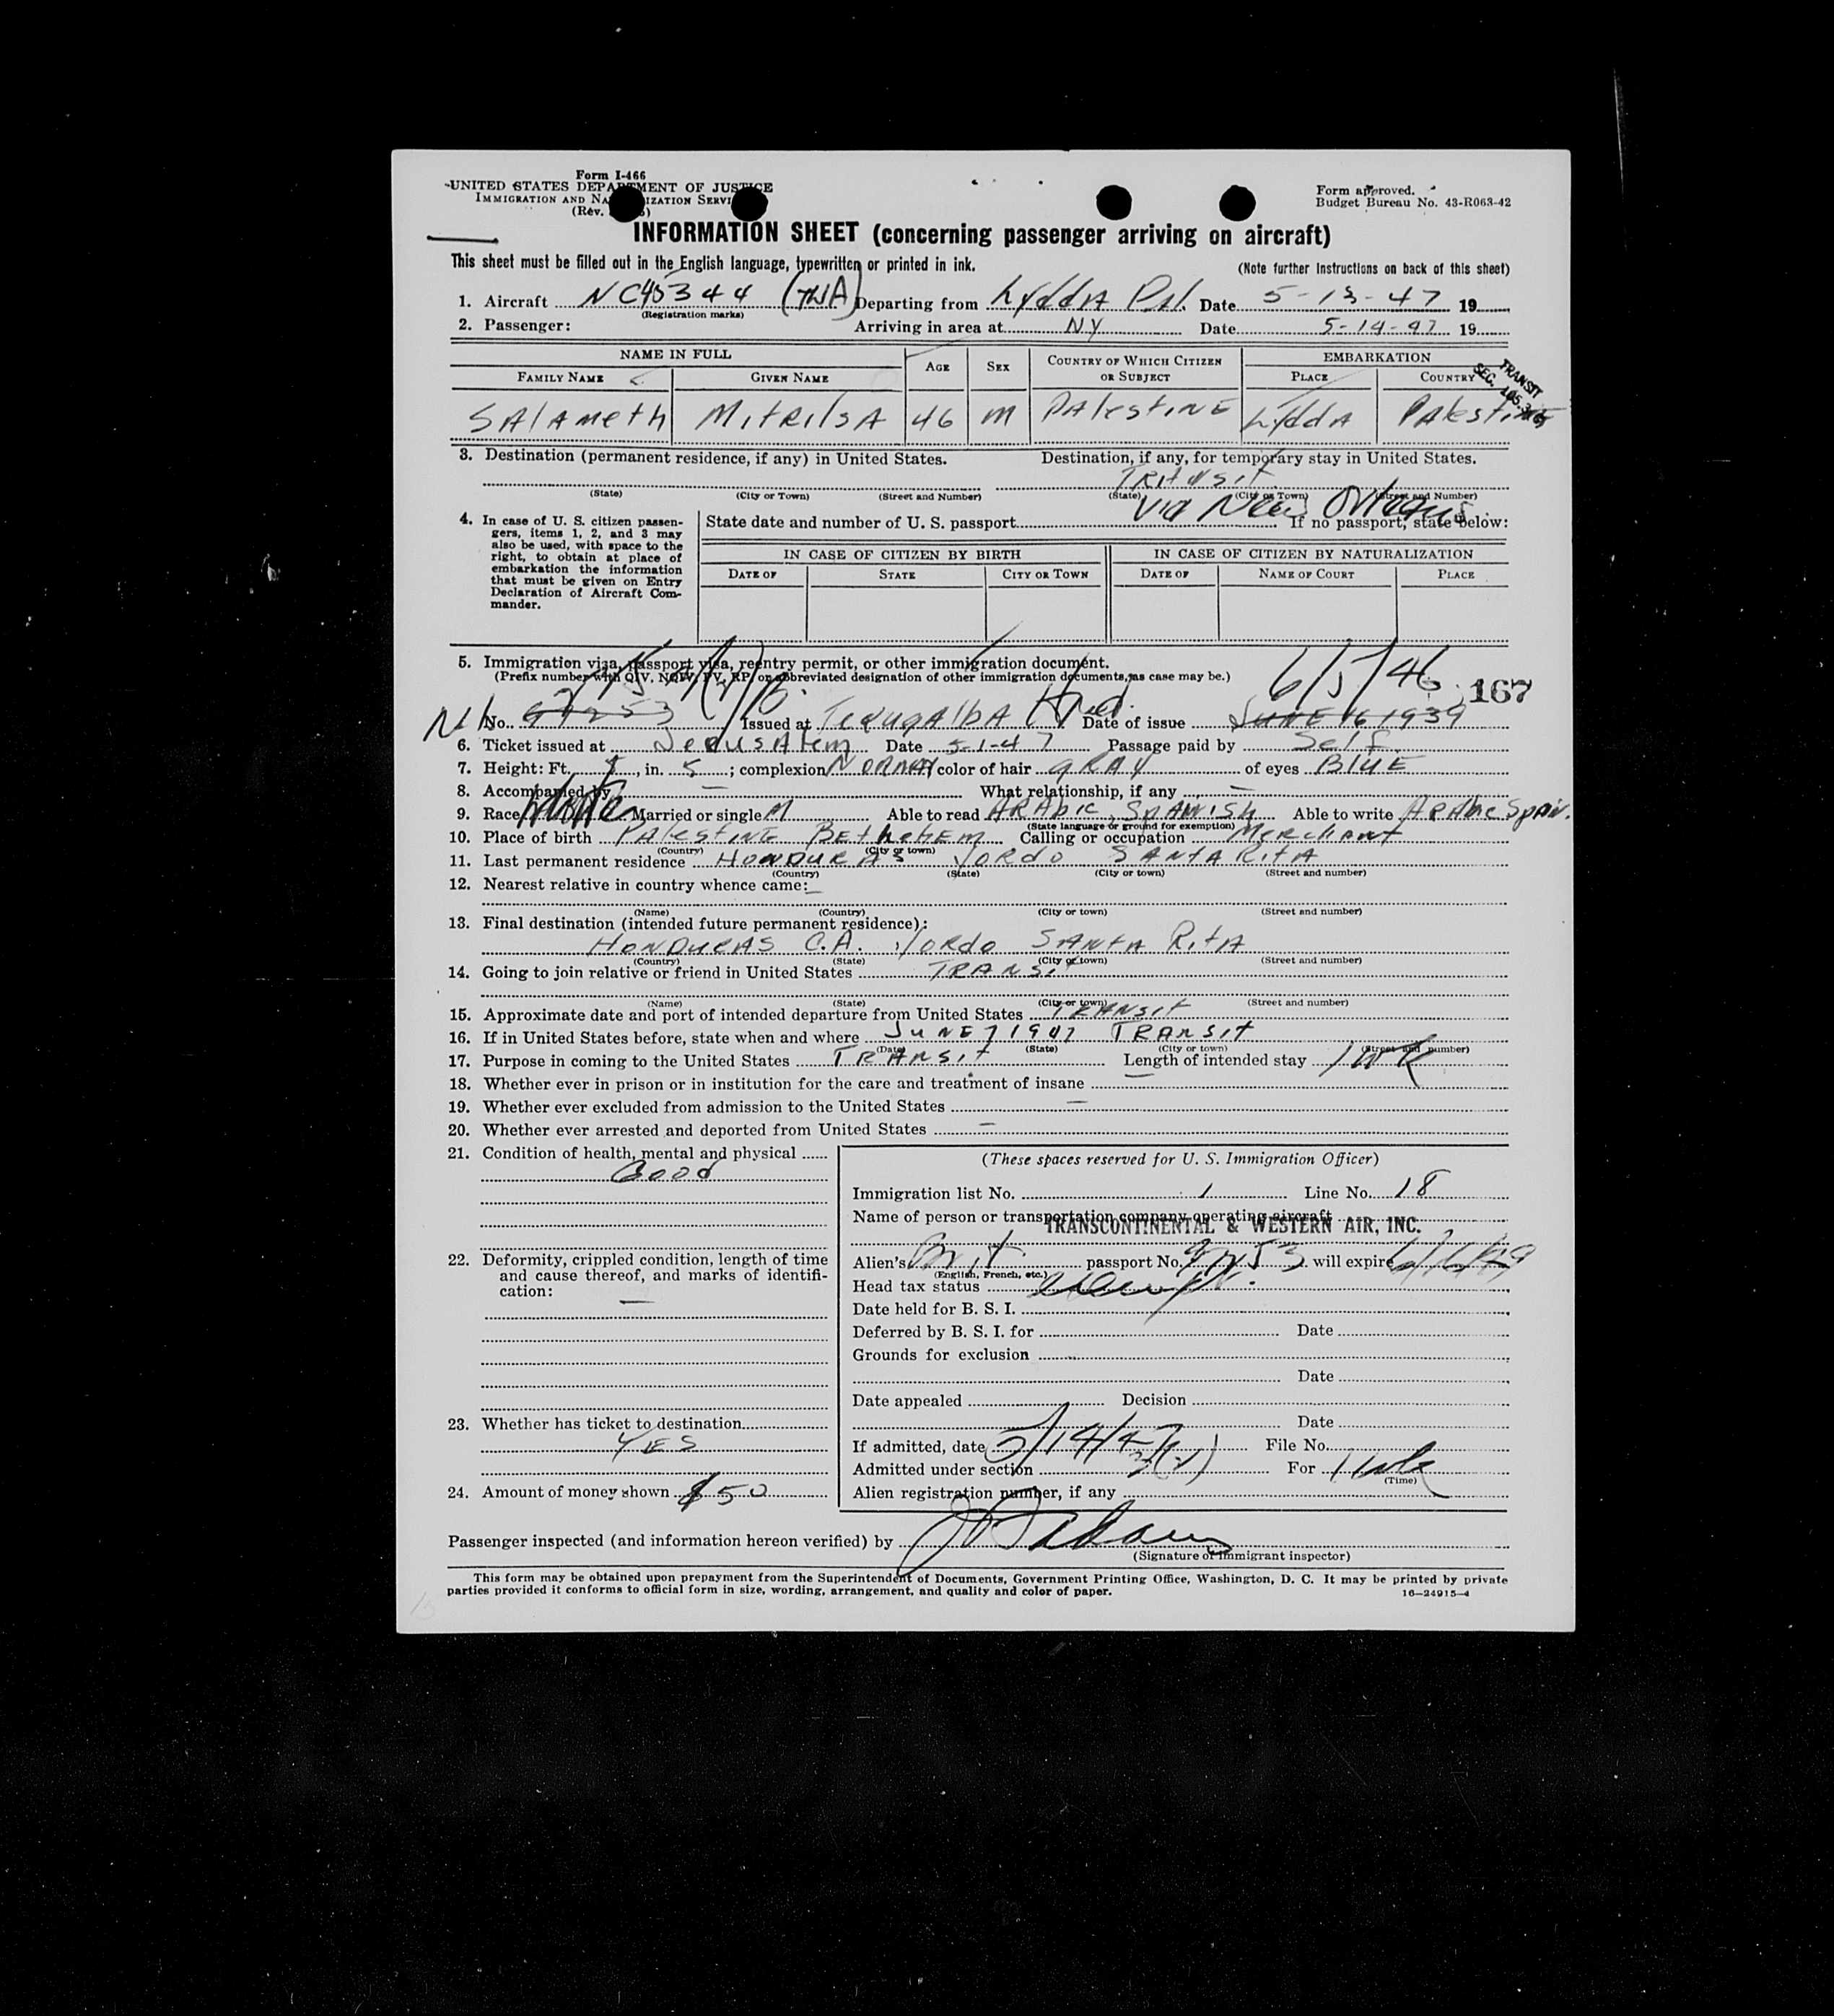 Form I-466
UNITED STATES DEPARTMENT OF JUSTICE
IMMIGRATION AND NATURALIZATION SERVICE
(Rev.
Form approved.
Budget Bureau No. 43-R063-42
INFORMATION SHEET (concerning passenger arriving on aircraft)
This sheet must be filled out in the English language, typewritten or printed in ink.
(Note further instructions on back of this sheet)
1. Aircraft NC45344 (TWA) Departing from LyddA PAl. Date 5-13-47 19
(Registration marks)
2. Passenger: Arriving in area at NY Date 5-14-47 19
NAME IN FULL AGE SEX COUNTRY OF WHICH CITIZEN OR SUBJECT EMBARKATION
FAMILY NAME GIVEN NAME PLACE COUNTRY
TRANSIT
SEC.
SAlAmeth MitRilSA 46 M PAlestiNE LyddA PAlestiNE
3. Destination (permanent residence, if any) in United States. Destination, if any, for temporary stay in United States.
TRANSit
(State) (City or Town) (Street and Number) (State) (City or Town) (Street and Number)
via New Orleans
4. In case of U. S. citizen passengers, items 1, 2, and 3 may also be used, with space to the right, to obtain at place of embarkation the information that must be given on Entry Declaration of Aircraft Commander.
State date and number of U. S. passport If no passport, state below:
IN CASE OF CITIZEN BY BIRTH IN CASE OF CITIZEN BY NATURALIZATION
DATE OF STATE CITY OR TOWN DATE OF NAME OF COURT PLACE
5. Immigration visa, passport visa, reentry permit, or other immigration document.
(Prefix number with QIV, NQIV, PV, RP, or abbreviated designation of other immigration documents, as case may be.)
6/5/46 167
No. Issued at TegugAlbA Hnd. Date of issue JUNE 16 1939
6. Ticket issued at JerusAlem Date 5-1-47 Passage paid by Self
7. Height: Ft. 5, in. 5; complexion NORMAl color of hair GRAY of eyes BlUE
8. Accompanied by — What relationship, if any —
9. Race White Married or single M Able to read ARAbic, SpANish Able to write ARAbic Span.
(State language or ground for exemption)
10. Place of birth PAlestiNE BEthlehEm Calling or occupation MERchant
(Country) (City or town)
11. Last permanent residence HONDURAS YORdo SANtA RitA
(Country) (State) (City or town) (Street and number)
12. Nearest relative in country whence came: —
(Name) (Country) (City or town) (Street and number)
13. Final destination (intended future permanent residence):
HONDURAS C.A. YORdo SANtA RitA
(Country) (State) (City or town) (Street and number)
14. Going to join relative or friend in United States TRANSit
(Name) (State) (City or town) (Street and number)
15. Approximate date and port of intended departure from United States TRANsit
16. If in United States before, state when and where JUNE 7 1947 TRANSit
(Date) (State) (City or town) (Street and number)
17. Purpose in coming to the United States TRANsit Length of intended stay 1 WK
18. Whether ever in prison or in institution for the care and treatment of insane —
19. Whether ever excluded from admission to the United States —
20. Whether ever arrested and deported from United States —
21. Condition of health, mental and physical
Good
(These spaces reserved for U. S. Immigration Officer)
Immigration list No. 1 Line No. 18
Name of person or transportation company operating aircraft
TRANSCONTINENTAL & WESTERN AIR, INC.
22. Deformity, crippled condition, length of time and cause thereof, and marks of identification:
—
Alien's Brit. passport No. will expire
(English, French, etc.)
Head tax status exempt.
Date held for B. S. I.
Deferred by B. S. I. for Date
Grounds for exclusion
Date
Date appealed Decision
23. Whether has ticket to destination
YES
Date
If admitted, date 5/14/47 File No.
Admitted under section 3(2) For 1 wk
(Time)
24. Amount of money shown $50
Alien registration number, if any
Passenger inspected (and information hereon verified) by
(Signature of immigrant inspector)
This form may be obtained upon prepayment from the Superintendent of Documents, Government Printing Office, Washington, D. C. It may be printed by private
parties provided it conforms to official form in size, wording, arrangement, and quality and color of paper.
16—24915-4